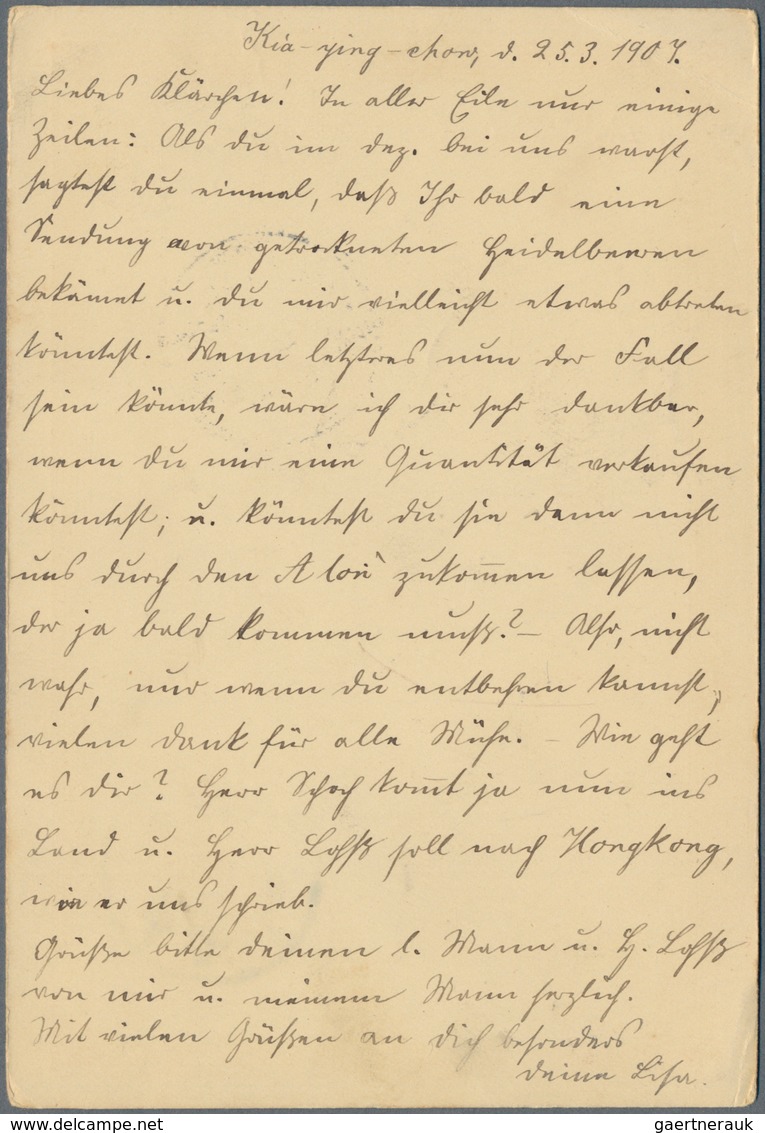 Kia-ying-chow, d. 25.3.1907.
Liebes Klärchen! In aller Eile nur einige
Zeilen: Als du im Dez. bei uns warst,
sagtest du einmal, daß Ihr bald eine
Sendung von getrockneten Heidelbeeren
bekämet u. du mir vielleicht etwas abtreten
könntest. Wenn letzteres nun der Fall
sein könnte, wäre ich dir sehr dankbar,
wenn du mir eine Quantität verkaufen
könntest; u. könntest du sie dann nicht
uns durch den A loi zukom̅en lassen,
der ja bald kommen muß? – Also, nicht
wahr, nur wenn du entbehren kannst,
vielen Dank für alle Mühe. – Wie geht
es dir? Herr Schoch kom̅t ja nun ins
Land u. Herr Lohß soll nach Hongkong,
wie er uns schrieb.
Grüße bitte deinen l. Mann u. H. Lohß
von mir u. meinem Mann herzlich.
Mit vielen Grüßen an dich besonders
deine Lisa.
gaertnerauk
www.delcampe.net